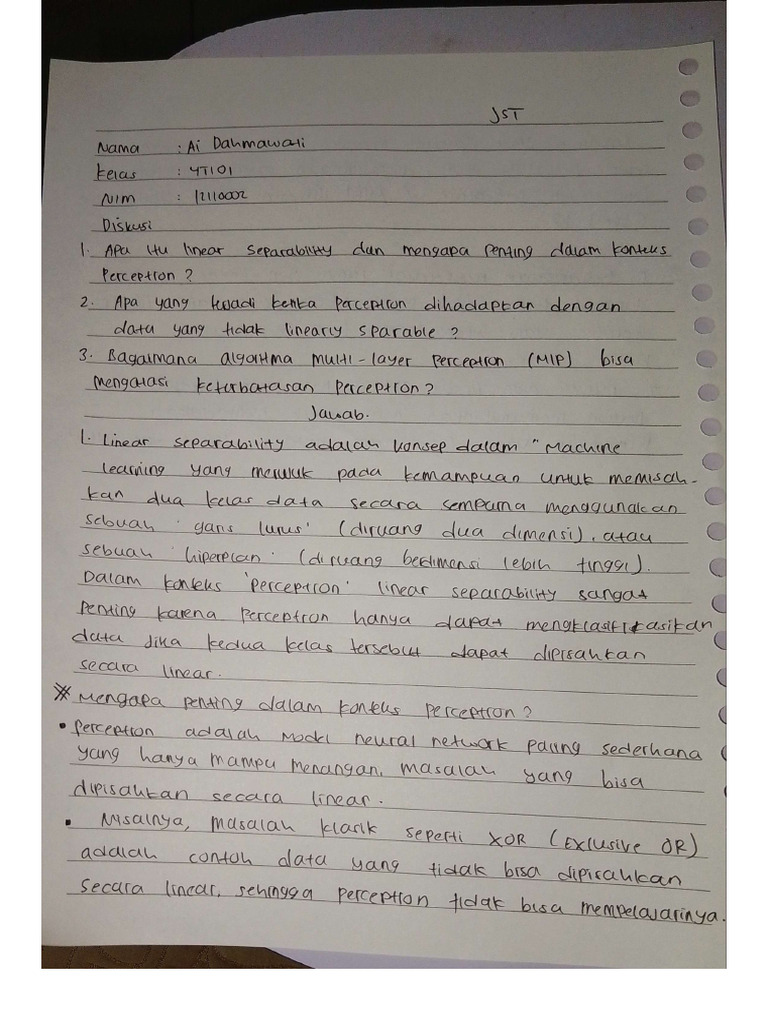 JST
Nama : Ai Dahmawati
Kelas : 4TI01
NIM : 12110002
Diskusi
1. Apa itu linear separability dan mengapa penting dalam konteks
Perceptron ?
2. Apa yang terjadi ketika perceptron dihadapkan dengan
data yang tidak linearly sparable ?
3. Bagaimana algoritma multi-layer perceptron (MIP) bisa
mengatasi keterbatasan perceptron ?
Jawab.
1. Linear separability adalah konsep dalam "Machine
learning yang merujuk pada kemampuan untuk memisah-
kan dua kelas data secara sempurna menggunakan
sebuah 'garis lurus' (diruang dua dimensi), atau
sebuah 'hiperplan' (di ruang berdimensi lebih tinggi).
Dalam konteks 'perceptron' linear separability sangat
penting karena perceptron hanya dapat mengklasifikasikan
data jika kedua kelas tersebut dapat dipisahkan
secara linear.
* Mengapa penting dalam konteks perceptron ?
• perceptron adalah model neural network paling sederhana
yang hanya mampu menangan, masalah yang bisa
dipisahkan secara linear.
• Misalnya, masalah klasik seperti XOR (Exclusive OR)
adalah contoh data yang tidak bisa dipisahkan
secara linear, sehingga perceptron tidak bisa mempelajarinya.